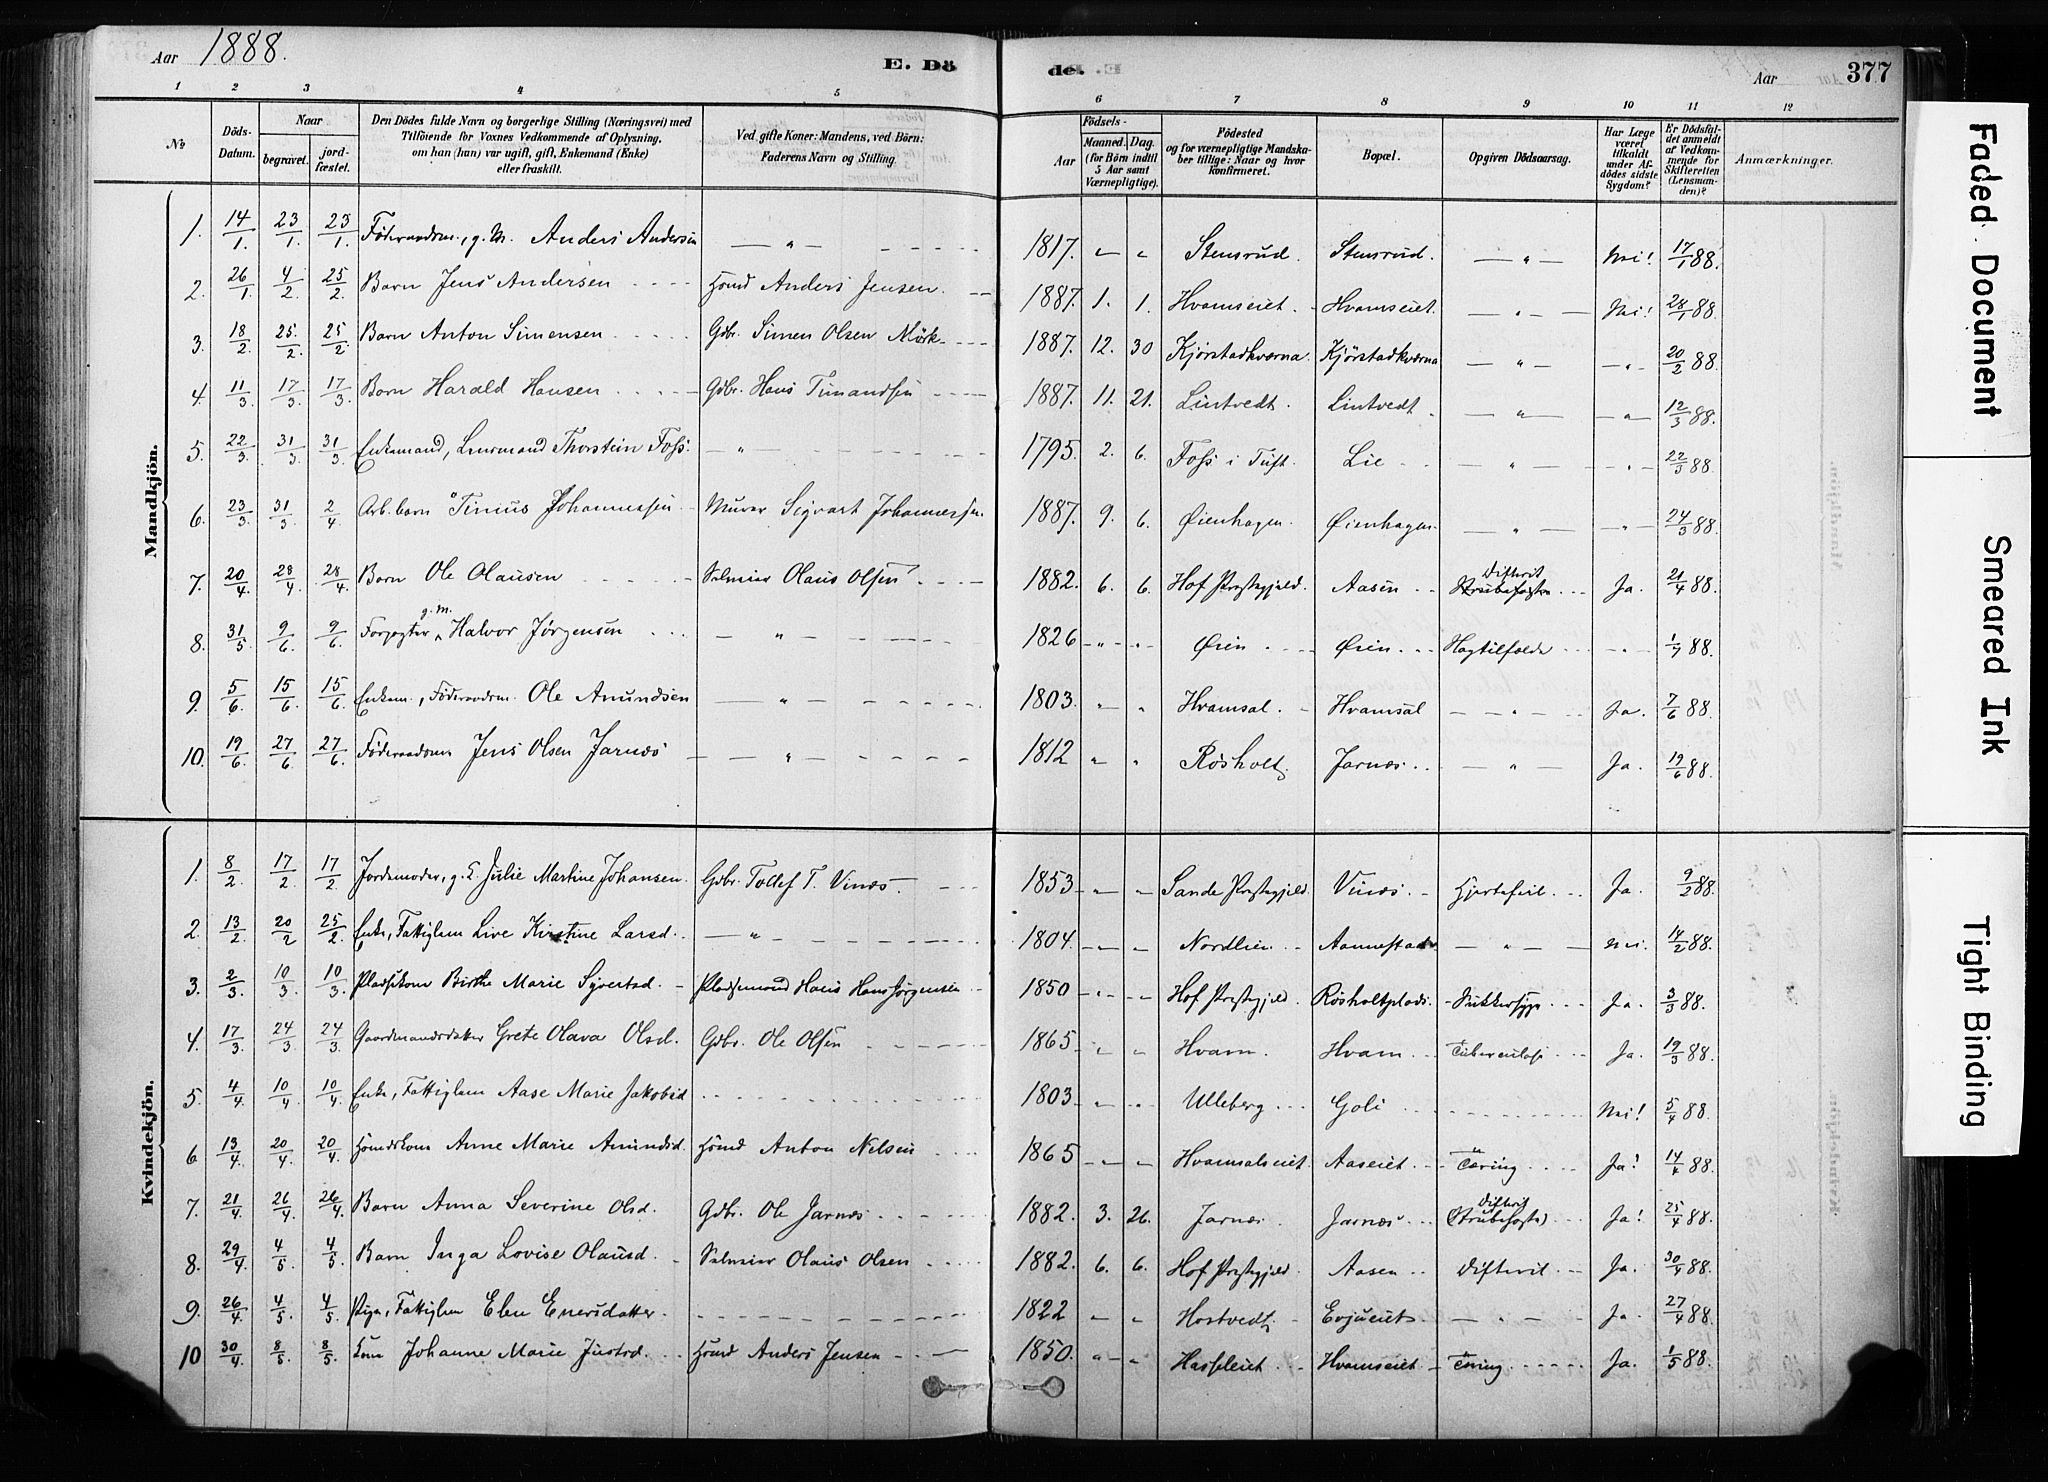 Aar 1888. E. Dö de. Aar 377
1 2 3 4 5 6 7 8 9 10 11 12
№ Döds-Datum. Naar begravet. jord-fæstet. Den Dödes fulde Navn og borgerlige Stilling (Næringsvei) med Tilföiende for Voxnes Vedkommende af Oplysning, om han (hun) var ugift, gift, Enkemand (Enke) eller fraskilt. Ved gifte Koner: Mandens, ved Börn: Faderens Navn og Stilling. Födsels- Aar Maaned. Dag. (for Börn indtil 5 Aar samt Værnepligtige). Födested og for værnepligtige Mandska-ber tillige: Naar og hvor konfirmeret. Bopæl. Opgiven Dödsaarsag. Har Læge været tilkaldt under Af-dödes sidste Sygdom? Er Dödsfal-det anmeldt af Vedkom-mende for Skifteretten (Lensman-den)? Anmærkninger.
Mandkjön.
1. 14/1 23/1 23/1 Föderaadsm., g. M. Anders Andersen — " — 1817. " " Stensrud. Stensrud. — " — Nei! 17/1 88.
2. 26/1 4/2 25/2 Barn Jens Andersen Hömd Anders Jensen. 1887. 1. 1. Hvamseiet. Hvamseiet. — " — Nei! 28/1 88.
3. 18/2 25/2 25/2 Barn Anton Simensen Gdbr. Simen Olsen Mörk 1887. 12. 30 Kjörstadkværna. Kjörstadkværna — " — — " — 20/2 88.
4. 11/3 17/3 17/3 Barn Harald Hansen Gdbr. Hans Timandsen 1887. 11. 21. Lintvedt. Lintvedt. — " — — " — 12/3 88.
5. 22/3 31/3 31/3 Enkemand, Lensmand Thorstein Foss. — " — 1795. 2. 6. Foss i Tuft. Lie — " — " 22/3 88.
6. 23/3 31/3 2/4 Arb. barn Tinius Johannessen Murer Sigvart Johannessen. 1887. 9. 6. Øienhagen. Øienhagen. — " — — " — 24/3 88.
7. 20/4 28/4 28/4 Barn Ole Olausen Selveier Olaus Olsen 1882. 6. 6. Hof Præstegjeld. Aasen Difterit Ja. 21/4 88.
8. 31/5 9/6 9/6 Forpagter g. M. Halvor Jörgensen — " — 1826 " " Øien Øien. — " — 1/7 88.
9. 5/6 15/6 15/6 Enkem., Föderaadsm. Ole Amundsen — " — 1803. " " Hvamsal. Hvamsal — " — Ja. 7/6 88.
10. 19/6 27/6 27/6 Föderaadsm Jens Olsen Jarnæs — " — 1812 " " Rösholt Jarnæs — " — Ja. 19/6 88.
Kvindekjön.
1. 8/2 17/2 17/2 Jordemoder, g. K. Julie Martine Johansen. Gdbr. Tollef T. Vinæs. 1853 " " Sande Præstegjeld Vinæs. Hjertefeil Ja. 9/2 88.
2. 13/2 20/2 25/2 Enke, Fattiglem Live Kirstine Larsd. — " — 1804. " " Nordlien Aannestad — " — nei. 14/2 88.
3. 2/3 10/3 10/3 Pladsekone Birthe Marie Syvertsd. Pladsemand Hans Hans Jørgensen 1850 " " Hof Præstegjeld. Rösholtplads. Sukkersyge Ja. 3/3 88.
4. 17/3 24/3 24/3 Gaardmandsdatter Grete Olava Olsd. Gdbr. Ole Olsen 1865 " " Hvam. Hvam Tuberculose Ja. 19/3 88.
5. 4/4 10/4 10/4 Enke, Fattiglem Aase Marie Jakobsd 1803 " " Ulleberg Goli Nei! 5/4 88.
6 13/4 20/4 20/4 Hömdskone Anne Marie Amundsd. Hömd Anton Nilsen 1865 " " Hvamsalseiet Aaseiet Tæring Ja! 14/4 88.
7. 21/4 26/4 26/4 Barn Anna Severine Olsd. Gdbr. Ole Jarnæs 1882. 3. 26. Jarnæs Jarnæs Difterit (Strubehoste) Ja! 25/4 88.
8. 29/4 4/5 4/5 Barn Inga Lovise Olausd. Selveier Olaus Olsen 1882. 6. 6. Hof Præstegjeld. Aasen Difterit Ja. 30/4 88.
9. 26/4 4/5 4/5 Pige, Fattiglem Elen Enersdatter 1822 " " Hostvedt. Evjueiet — " — Ja. 27/4 88.
10 30/4 8/5 8/5 Kone Johanne Marie Justsd. Hömd Anders Jensen 1850. " " Hassleiet Hvamseiet Tæring Ja. 1/5 88.
Faded Document
Smeared Ink
Tight Binding